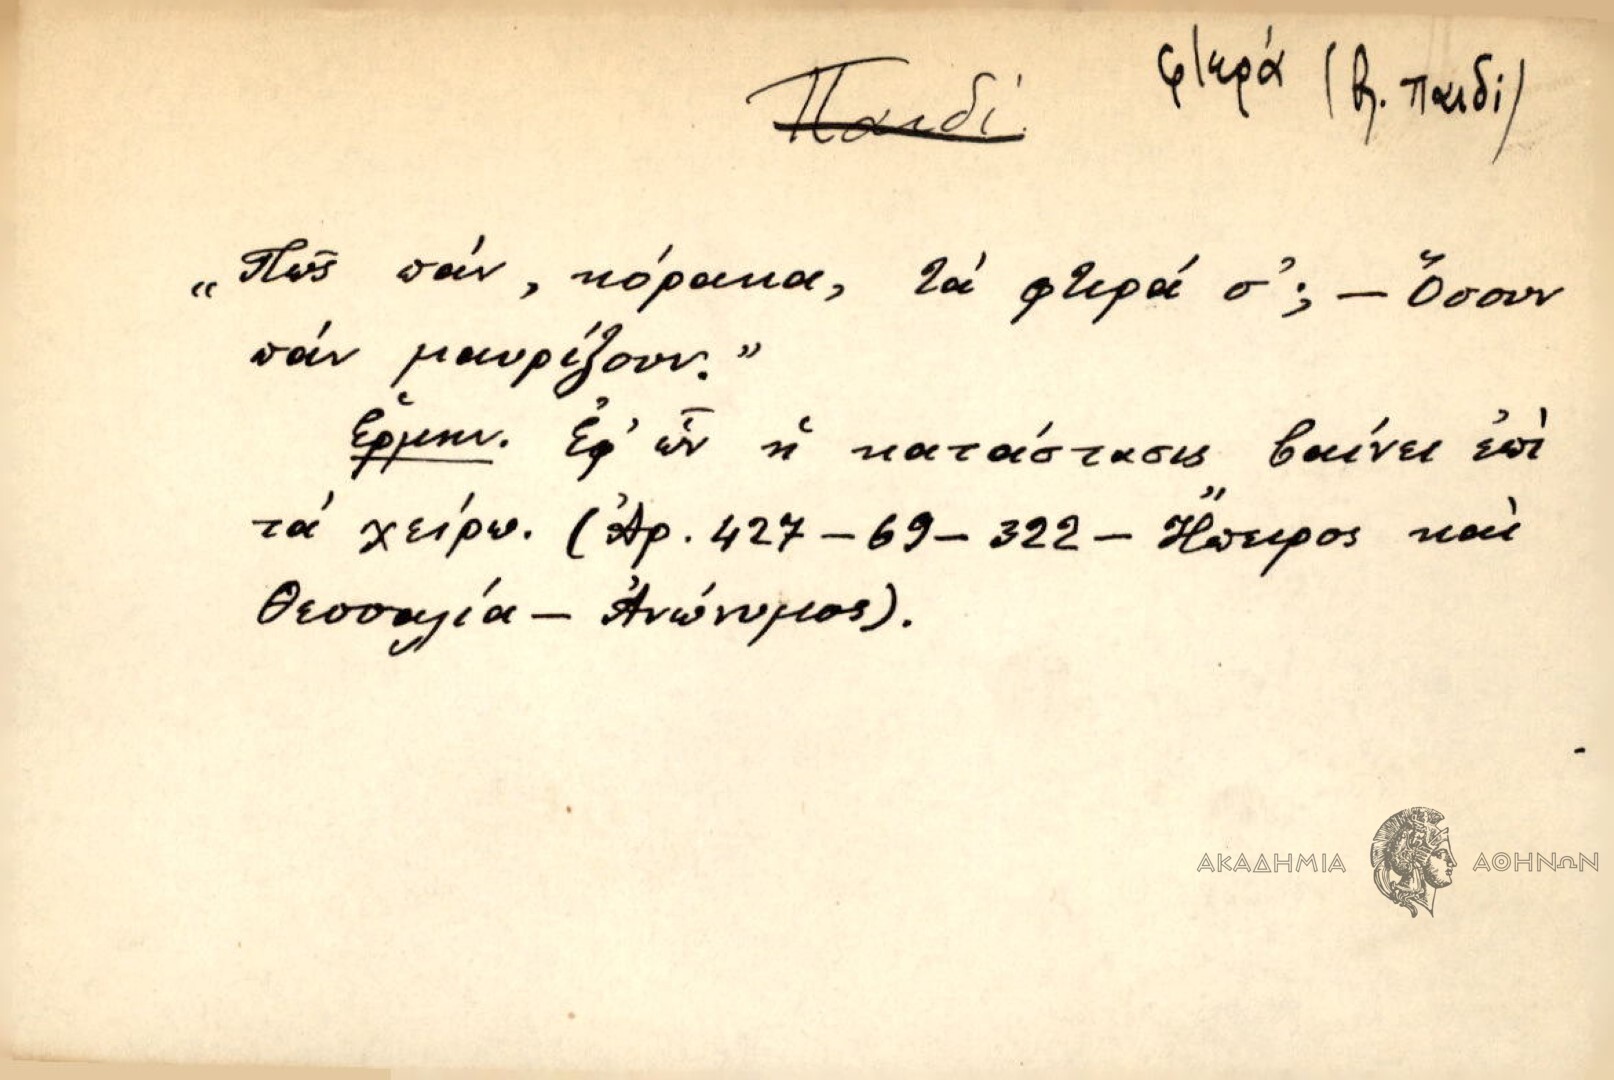 Παιδί
φτερά (βλ. παιδί)
„Πῶς πάν, κόρακα, τά φτερά σ'; — Ὅσουν
πάν μαυρίζουν."
Ἑρμην. Ἐφ' ὧν ἡ κατάστασις βαίνει ἐπὶ
τά χείρω. (Ἀρ. 427 – 69 – 322 – Ἤπειρος καὶ
Θεσσαλία – Ἀνώνυμος).
ΑΚΑΔΗΜΙΑ ΑΘΗΝΩΝ